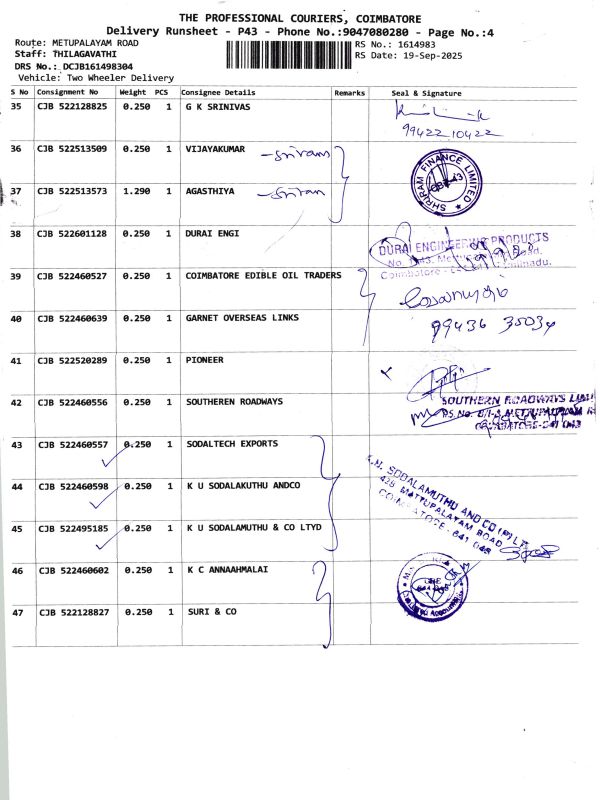 THE PROFESSIONAL COURIERS, COIMBATORE
Delivery Runsheet - P43 - Phone No.:9047080280 - Page No.:4
Route: METUPALAYAM ROAD
RS No.: 1614983
Staff: THILAGAVATHI
RS Date: 19-Sep-2025
DRS No.: DCJB161498304
Vehicle: Two Wheeler Delivery
S No Consignment No Weight PCS Consignee Details Remarks Seal & Signature
35 CJB 522128825 0.250 1 G K SRINIVAS
99422 10422
36 CJB 522513509 0.250 1 VIJAYAKUMAR - sriram
SHRIRAM FINANCE LIMITED
37 CJB 522513573 1.290 1 AGASTHIYA - sriram
38 CJB 522601128 0.250 1 DURAI ENGI
DURAI ENGINEERING PRODUCTS
39 CJB 522460527 0.250 1 COIMBATORE EDIBLE OIL TRADERS
40 CJB 522460639 0.250 1 GARNET OVERSEAS LINKS
99436 35034
41 CJB 522520289 0.250 1 PIONEER
42 CJB 522460556 0.250 1 SOUTHEREN ROADWAYS
SOUTHERN ROADWAYS
43 CJB 522460557 0.250 1 SODALTECH EXPORTS
44 CJB 522460598 0.250 1 K U SODALAKUTHU ANDCO
K.N. SODALAMUTHU AND CO (P) LT
426 MATTUPALAYAM ROAD
COIMBATORE - 641 043
45 CJB 522495185 0.250 1 K U SODALAMUTHU & CO LTYD
46 CJB 522460602 0.250 1 K C ANNAAHMALAI
47 CJB 522128827 0.250 1 SURI & CO